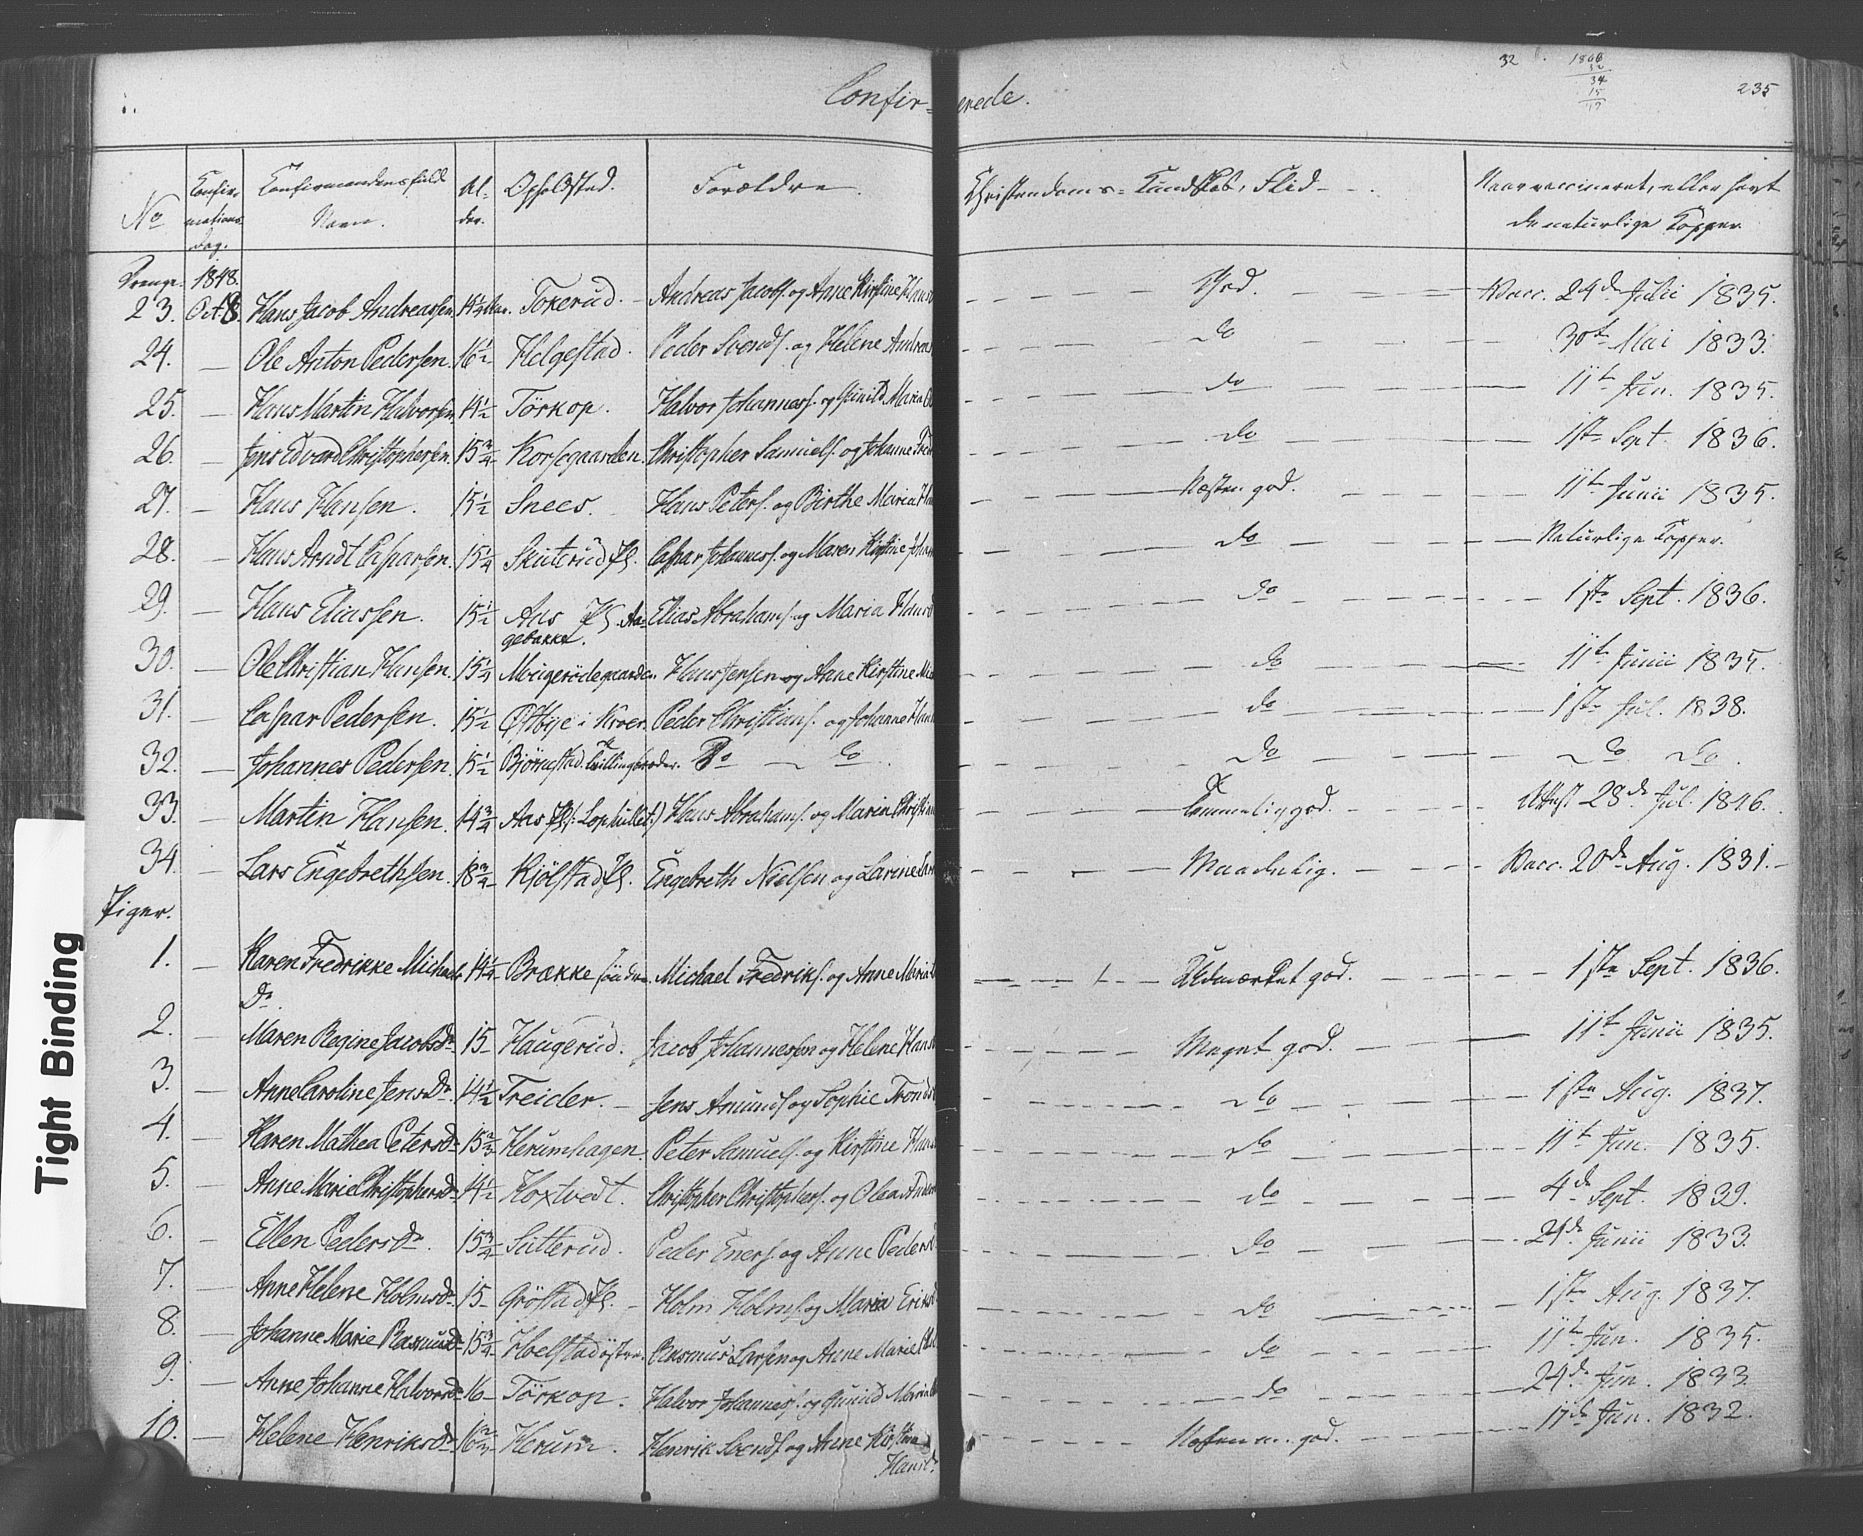 Confir=erede.
32 1866
32
34
15
19
235
No
Confir-
mations
Dag.
Confirmandens fulde
Navn.
Al-
der.
Opholdsted.
Forældre.
Christendoms= Kundskab, Flid
Naar vaccineret, eller havt
de naturlige Kopper.
Drenge. 1848.
23. Oct 8. Hans Jacob Andreassen 14½ Aar. Tokerud. Andreas Jacobs. og Anne Kirstine Hans God. Vacc. 24de Julii 1835.
24. — Ole Anton Pedersen. 16½ Helgestad. Peder Svends. og Helene Andrea do 30te Mai 1833.
25. — Hans Martin Halvorsen. 14½ Törkop. Halvor Johanness. og Gunild Maria do 11te Jun. 1835.
26. — Jens Edvard Christophersen. 15¾ Korsegaarden. Christopher Samuels. og Johanne Fred do 1ste Sept. 1836.
27. — Hans Hansen. 15½ Snees. Hans Peters. og Birthe Maria Ha Næsten god. 11te Junii 1835.
28. — Hans Arndt Casparsen. 15¼ Skuterud Pl. Caspar Johanness. og Maren Kirstine Joha do Naturlige Kopper.
29. — Hans Eliassen. 15½ Aas Pl. Aa- Elias Abrahams. og Maria Hansd do 1ste Sept. 1836.
gebakke.
30. — Ole Christian Hansen. 15¼ Moigerödegaarden. Hans Jensen og Anne Kirstine do 11te Junii 1835.
31. — Caspar Pedersen. 15½ Østbye i Kroer. Peder Christians. og Johanne Han do 1ste Jul. 1838.
32. — Johannes Pedersen. 15½ Björnstad. Do — do do do do.
33. — Martin Hansen. 14¾ Aas Pl. Hans Abrahams. og Maria Christin Temmelig god. Attest 28de Jul. 1846.
34. — Lars Engebrethsen. 18¾ Kjölstad Pl. Engebreth Nielsen og Larine Lar Maadelig. Vacc. 20de Aug. 1831.
Piger.
1. — Karen Fredrikke Michaels 14¼ Brække söndre. Michael Fredriks. og Anne Maria Udmærket god. 1ste Sept. 1836.
Dr
2. — Maren Regine Jacobsdr 15 — Haugerud. Jacob Johannessen og Helene Hans Meget god. 11te Junii 1835.
3. — Anne Caroline Jensdr. 14½ Treider. Jens Amunds. og Sophie Tronds do 1ste Aug. 1837.
4. — Karen Mathea Petersdr 15⅔ Herumhagen. Peter Samuels. og Kirstine Hans do 11te Jun. 1835.
5. — Anne Marie Christophersdr 14½ Hoxtvedt. Christopher Christophers. og Olea Ander do 4de Sept. 1839.
6. — Ellen Pedersdr. 15¾ Sutterud. Peder Eners. og Anne Pedersd do 24de Junii 1833.
7. — Anne Helene Holmsdr. 15 — Gröstad Pl. Holm Holms. og Maria Eriksd do 1ste Aug. 1837.
8. — Johanne Marie Rasmusdr 15¾ Hoelstad östre. Rasmus Larsen og Anne Marie do 11te Jun. 1835.
9. — Anne Johanne Halvorsdr 16 — Törkop. Halvor Johanness. og Gunild Maria do 24de Jun. 1833.
10. — Helene Henriksdr. 16⅔ Herum. Henrik Svends. og Anne Kirstine god. 17de Jun. 1832.
Hansdr
Tight Binding